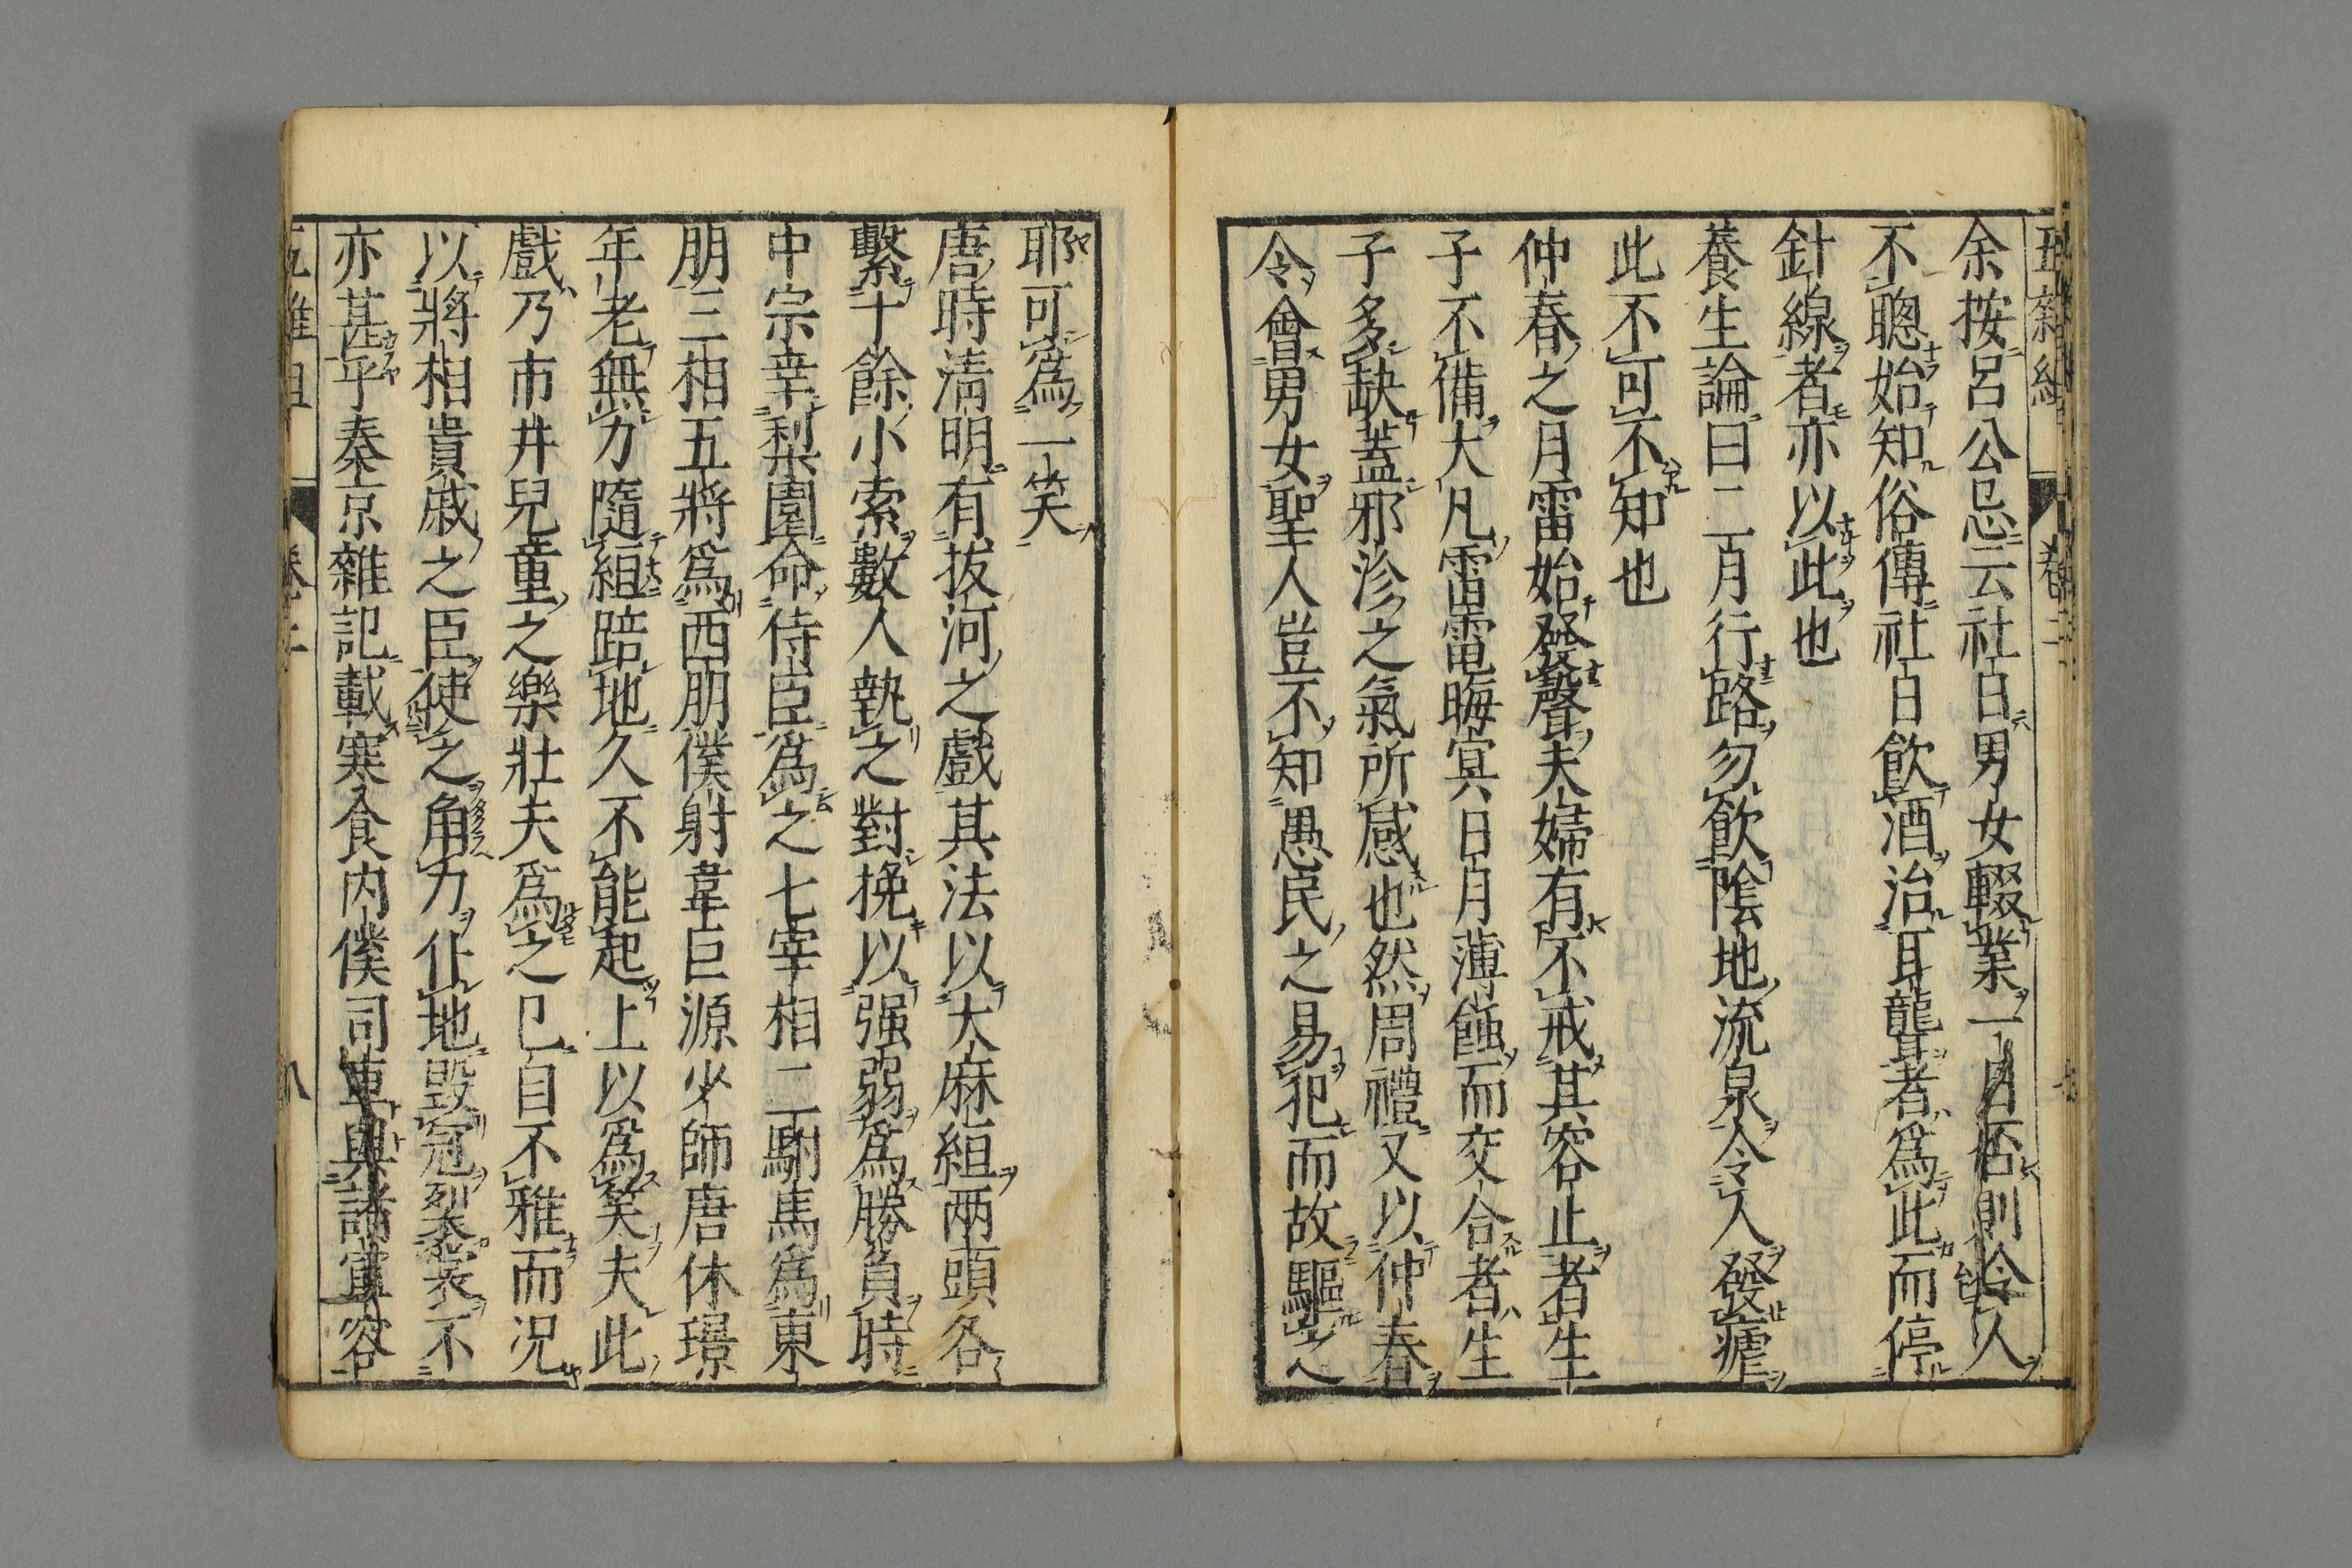 五雜組 卷二
余按呂公忌云社日男女輟業一日否則令人
不聰始知俗傳社日飲酒治耳聾者爲此而停
針線者亦以此也
養生論曰二月行路勿飲陰地流泉令人發瘧
此不可不知也
仲春之月雷始發聲夫婦有不戒其容止者生
子不備大凡雷電晦冥日月薄蝕而交合者生
子多缺蓋邪沴之氣所感也然周禮又以仲春
令會男女聖人豈不知愚民之易犯而故驅之
耶可爲一笑
唐時清明有拔河之戲其法以大麻絙兩頭各
繫十餘小索數人執之對挽以强弱爲勝負時
中宗幸梨園命侍臣爲之七宰相二駙馬爲東
朋三相五將爲西朋僕射韋巨源少師唐休璟
年老無力隨絙踣地久不能起上以爲笑夫此
戲乃市井兒童之樂壯夫爲之已自不雅而况
以將相貴戚之臣使之角力仆地毀冠裂裳不
亦甚乎秦京雜記載寒食内僕司車與諸軍容
五雜組 卷二 八